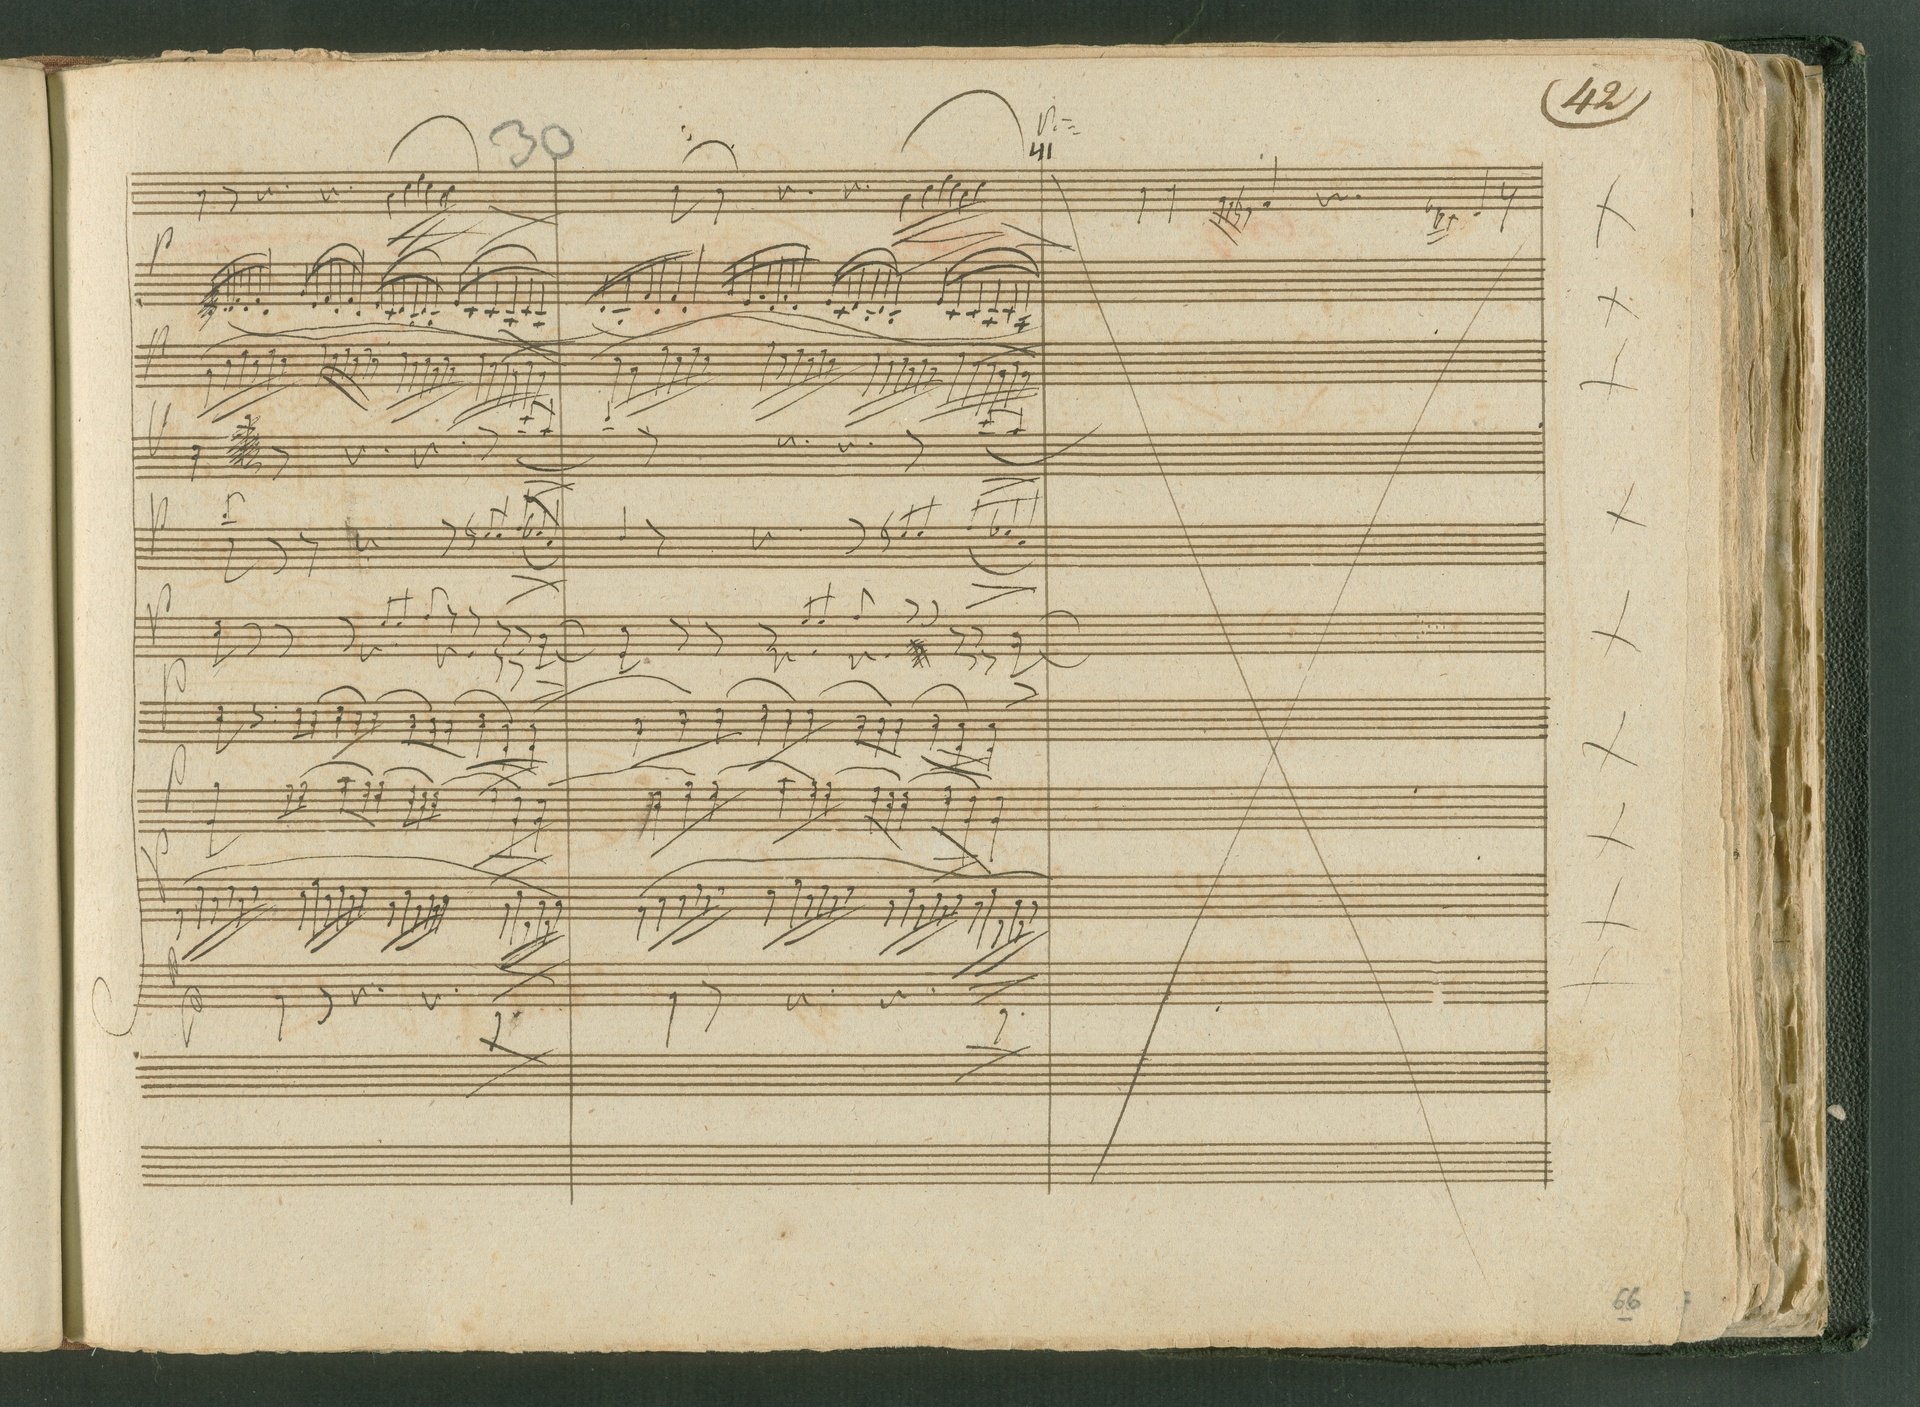 42
30
41
p
p
p
p
p
p
p
p
66